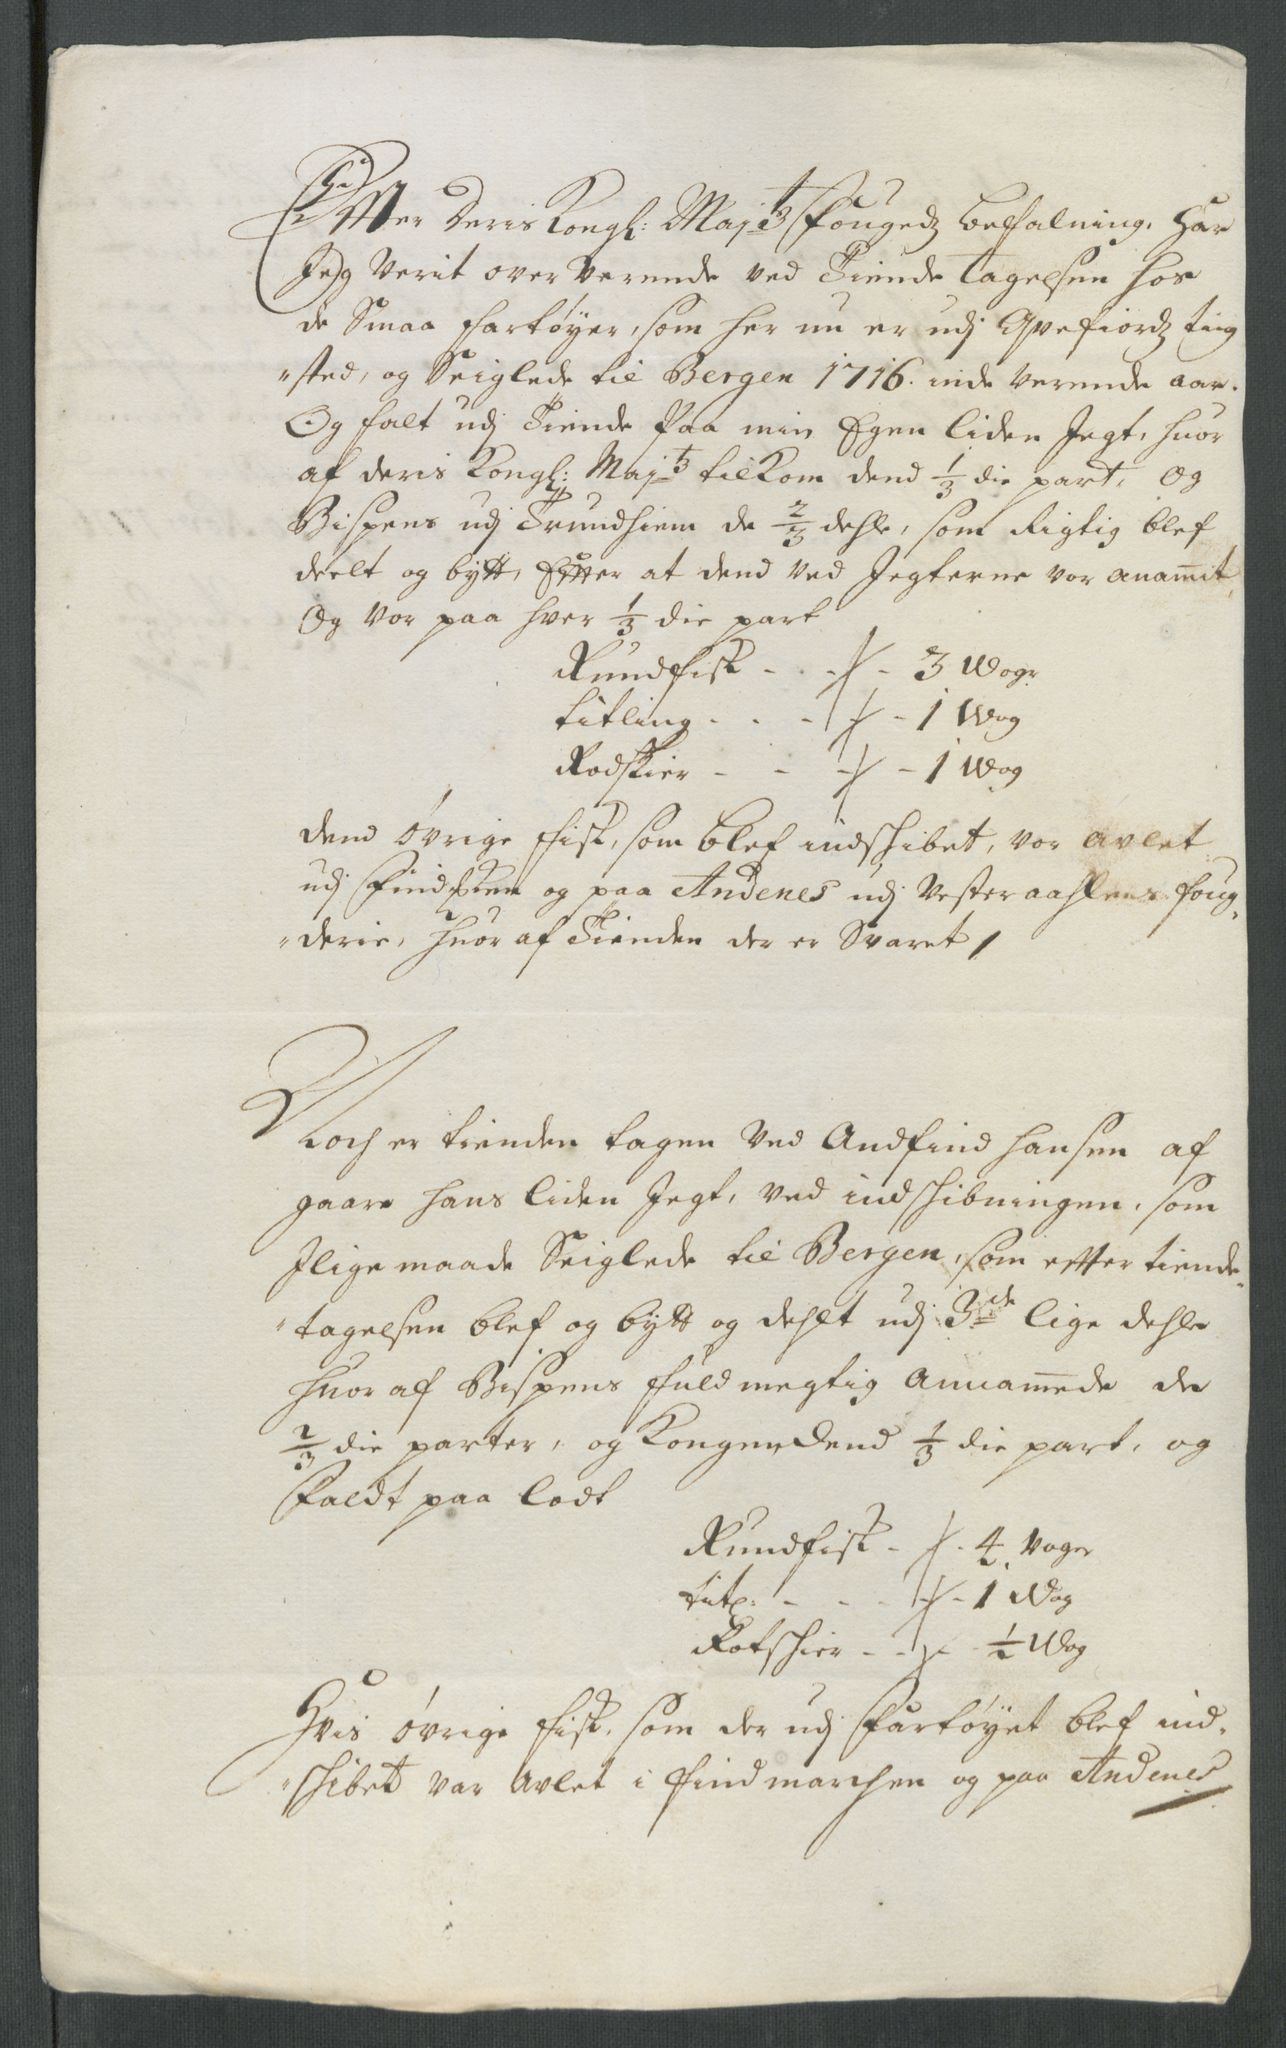 Efter deris Kongl: Maj:ts fougedz befalning, har
Jeg verit over verende ved Tiende tagelsen hos
de Smaa fartøyer, som her nu er udj Qvefiordz ting
"sted, og Seiglede til Bergen 1716. inde verende aar.
Og falt udj Tiende Paa min Egen liden Jegt, huor
af deris Kongl: Maj:ts tilkom dend 1/3 die part, og
Bispens udj Trundhiem de 2/3 dehle, som Rigtig blef
deelt og bytt, Efter at dend ved Jegterne vor anam̅it,
Og vor paa hver 1/3 die part
Rundfisk - - - 3 Woger
titling - - - - 1 Wog
Rodskier - - - - 1 Wog
dend øvrige fisk, som blef indschibet, vor avlet
udj og paa Andenes udj Vesteraahlens foug,
"derie, huor af Tienden der er Svaret /
Noch er tienden tagen ved Andfind hansen af
gaare hans liden Jegt, ved indschibningen, som
Jlige maade Seiglede til Bergen, som effter tiende,
"tagelsen blef og bytt og dehlt udj 3de lige dehle
huor af Bispens fuldmegtig annam̅ede de
2/3 die parter, og Kongen dend 1/3 die part, og
faldt paa lodt
Rundfisk - - 4 voger
titl: - - - - 1 Wog
Rotschier - - - 1/2 Wog
Hvis øvrige fisk, som der udj fartøyet blef ind,
"schibet var avlet i findmarchen og paa Andenes